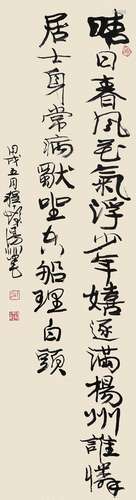 晴日春風花氣浮少年嬉逐滿楊州誰憐
居士身常病坐船理白頭
甲戌五月